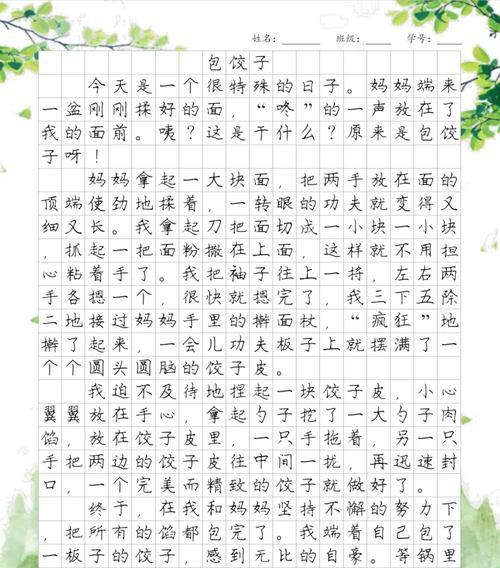 姓名：______ 班级：______ 学号：______
包饺子
今天是一个很特殊的日子。妈妈端来
一盆刚刚揉好的面，“咚”的一声放在了
我的面前。咦？这是干什么？原来是包饺
子呀！
妈妈拿起一大块面，把两手放在面的
顶端使劲地揉着，一转眼的功夫就变得又
细又长。我拿起刀把面切成一小块一小块
，抓起一把面粉撒在上面，这样就不用担
心粘着手了。我把袖子往上一捋，左右两
手各摁一个，很快就摁完了，我三下五除
二地接过妈妈手里的擀面杖，“疯狂”地
擀了起来，一会儿功夫板子上就摆满了一
个个圆头圆脑的饺子皮。
我迫不及待地捏起一块饺子皮，小心
翼翼放在手心，拿起勺子挖了一大勺子肉
馅，放在饺子皮里，一只手拖着，另一只
手把两边的饺子皮往中间一拢，再迅速封
口，一个完美而精致的饺子就做好了。
终于，在我和妈妈坚持不懈的努力下
，把所有的馅都包完了。我端着自己包了
一板子的饺子，感到无比的自豪。等锅里